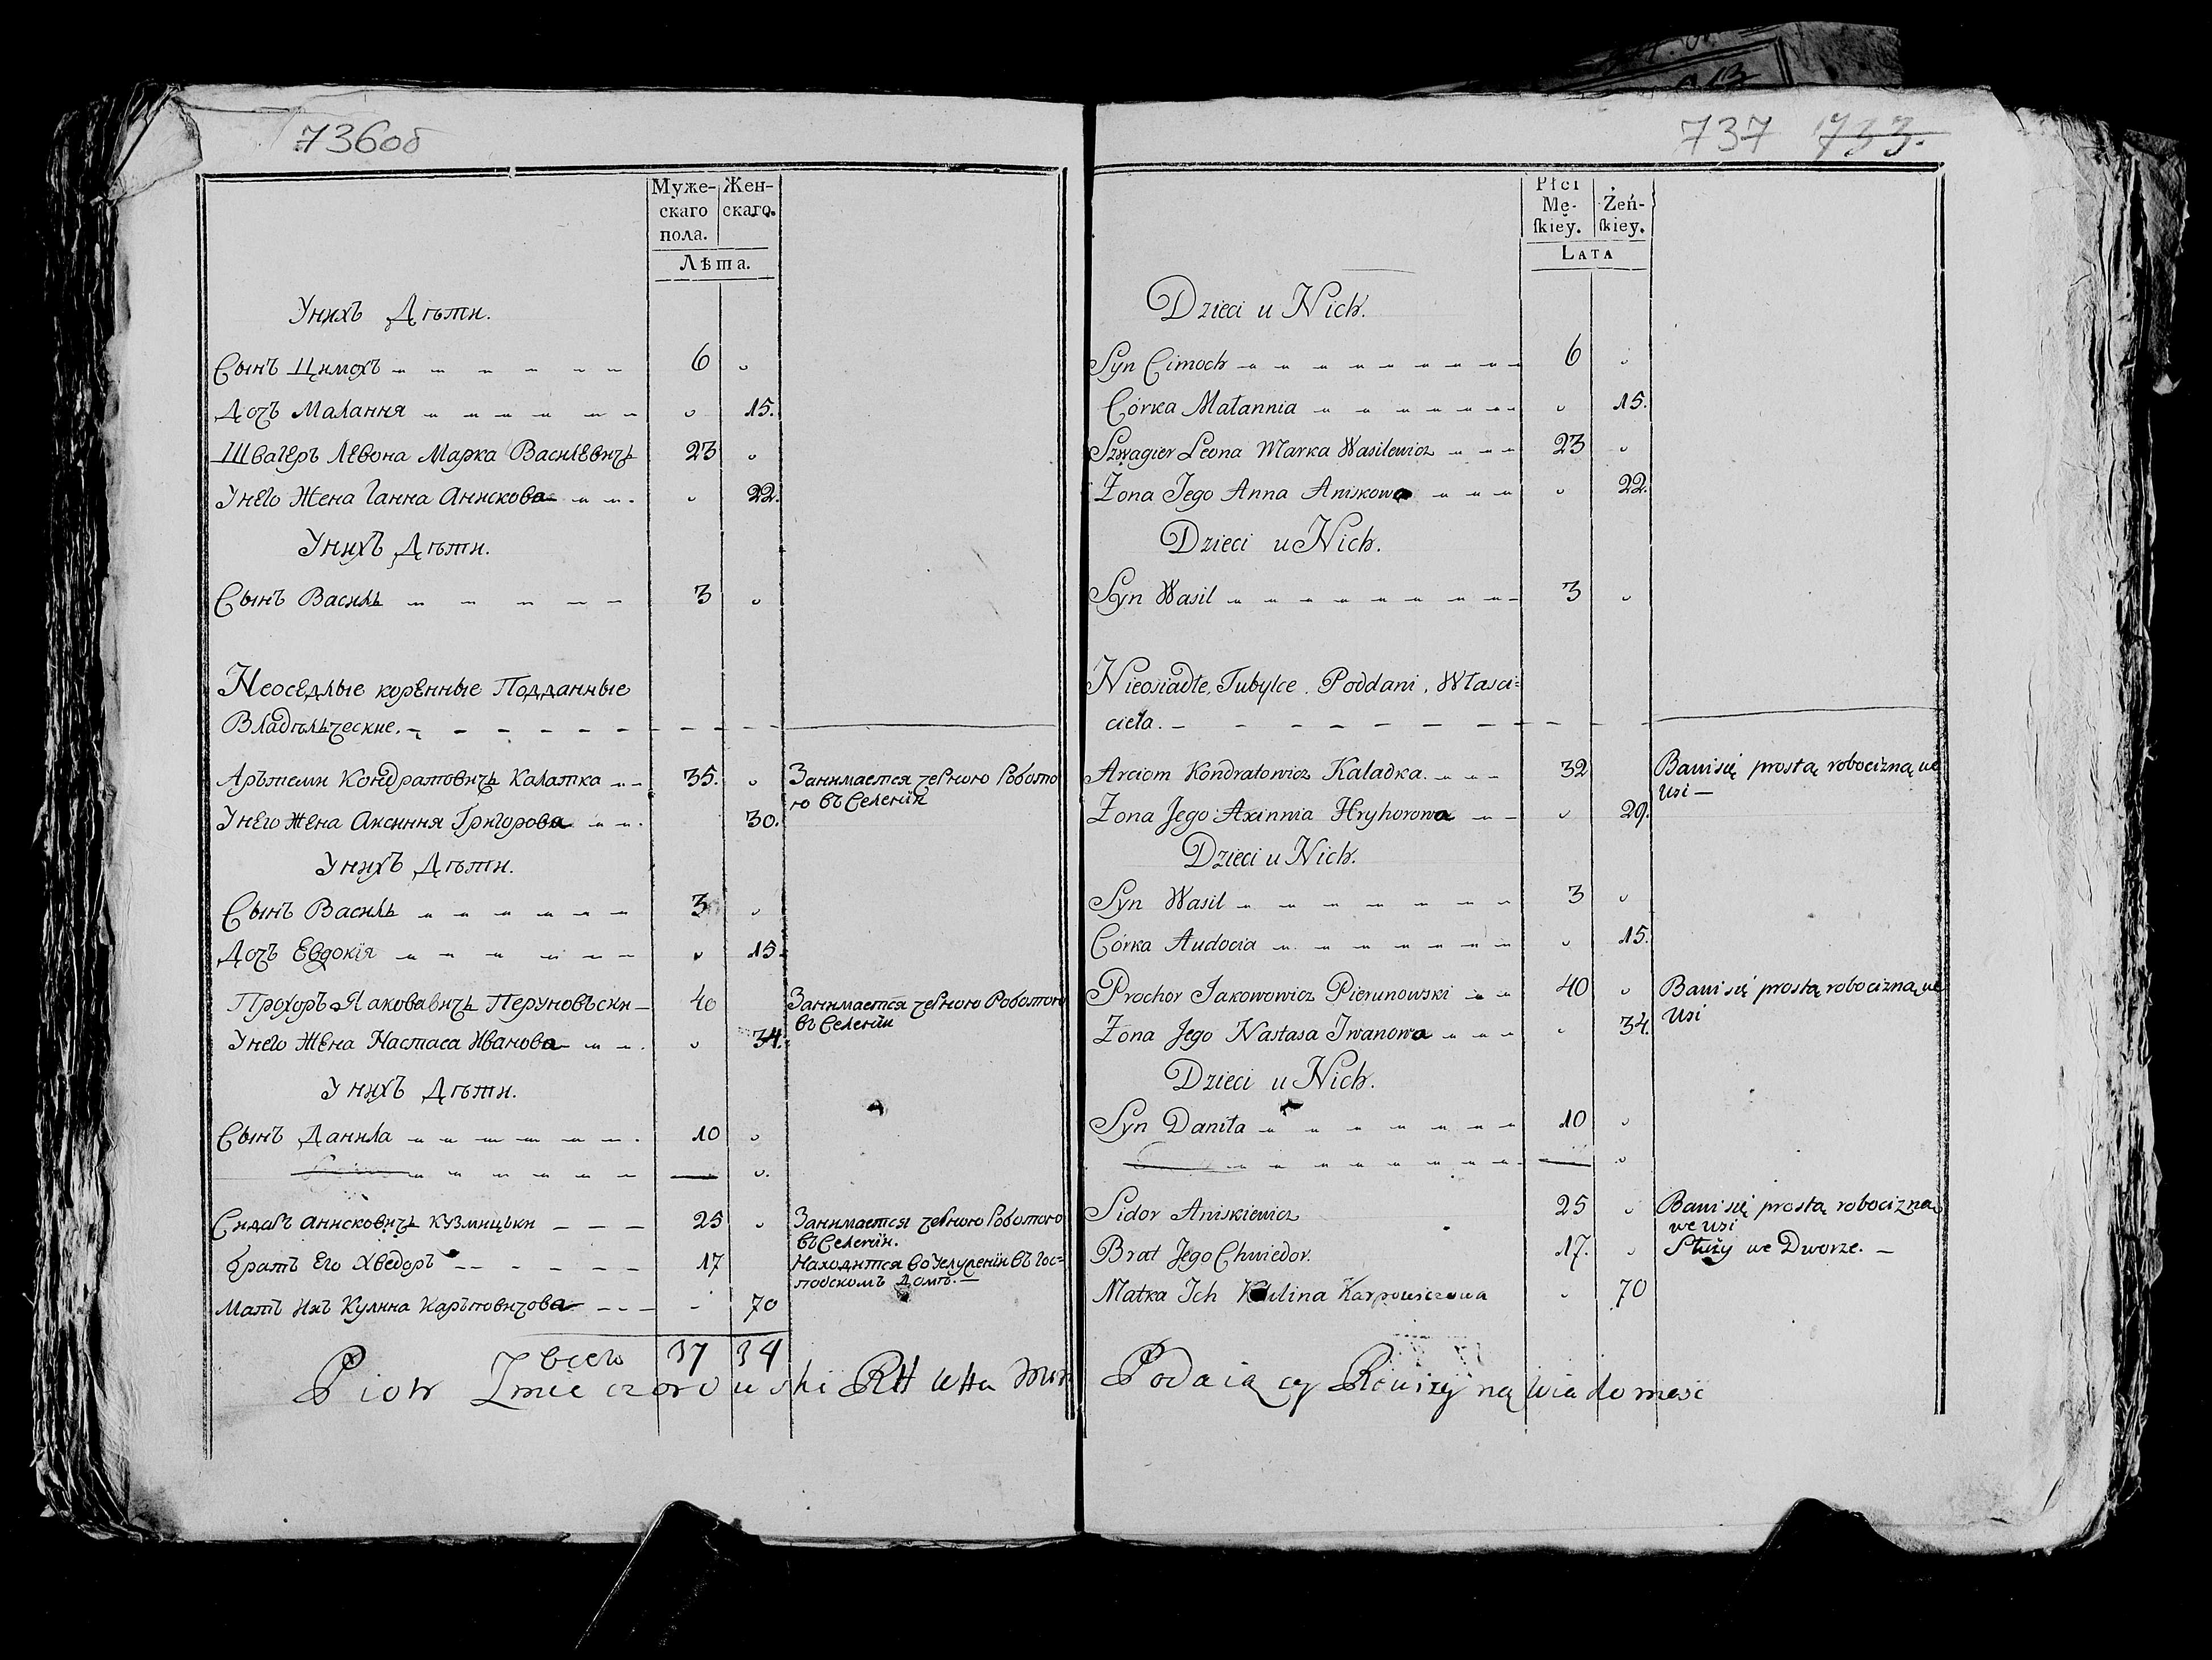 736об
Муже- Жен-
скаго скаго.
пола.
Лѣта.
Унихъ Дѣти.
Сынъ Цимохъ 6
Дочъ Малання 15.
Швагеръ Левона Марка Василевичь 23
Унего Жена Ганна Анискова 22.
Унихъ Дѣти.
Сынъ Василь 3
Неоседлые коренные Подданные
Владѣльческие.
Арътеми Кондратовичь Калатка 35.
Занимается черною Робото
ю въ Селении
Унего Жена Аксиння Григорова 30.
Унихъ Дѣти.
Сынъ Василь 3
Дочъ Евдокія 15.
Прохоръ Яаковавичь Перуновъски 40
Занимается черною Роботою
въ Селении
Унего Жена Настаса Иванова 34.
Унихъ Дѣти.
Сынъ Данила 10
Сидаръ Анисковичь Кузмицьки 25
Занимается черною Роботою
въ Селении.
братъ Его Хведоръ 17
Находится во Услужении въ гос=
подскомъ Домѣ.
Мать Ихъ Кулина Каръповичова 70
всего 37 34
Piotr
737 733.
Płci
Mę- Żeń-
skiey. skiey.
LATA
Dzieci u Nich.
Syn Cimoch 6
Córka Małannia 15.
Szwagier Leona Marka Wasilewicz 23
Żona Jego Anna Aniskowa 22.
Dzieci u Nich.
Syn Wasil 3
Nieosiadłe, Tubylce. Poddani, Własci=
ciela.
Arciom Kondratowicz Kaladka. 32
Bawi się prostą robocizną we
Wsi
Żona Jego Axinnia Hryhorowa 29.
Dzieci u Nich.
Syn Wasil 3
Córka Audocia 15.
Prochor Jakowowicz Pierunowski 40
Bawi się prostą robocizną we
Wsi
Żona Jego Nastasa Iwanowa 34.
Dzieci u Nich.
Syn Daniła 10
Sidor Aniskiewicz 25
Bawi się prostą robocizną
we wsi
Brat Jego Chwiedor. 17.
Służy we Dworze.
Matka Ich Kulina Karpowiczowa 70
Podaiący Rewizyą na wiadomość